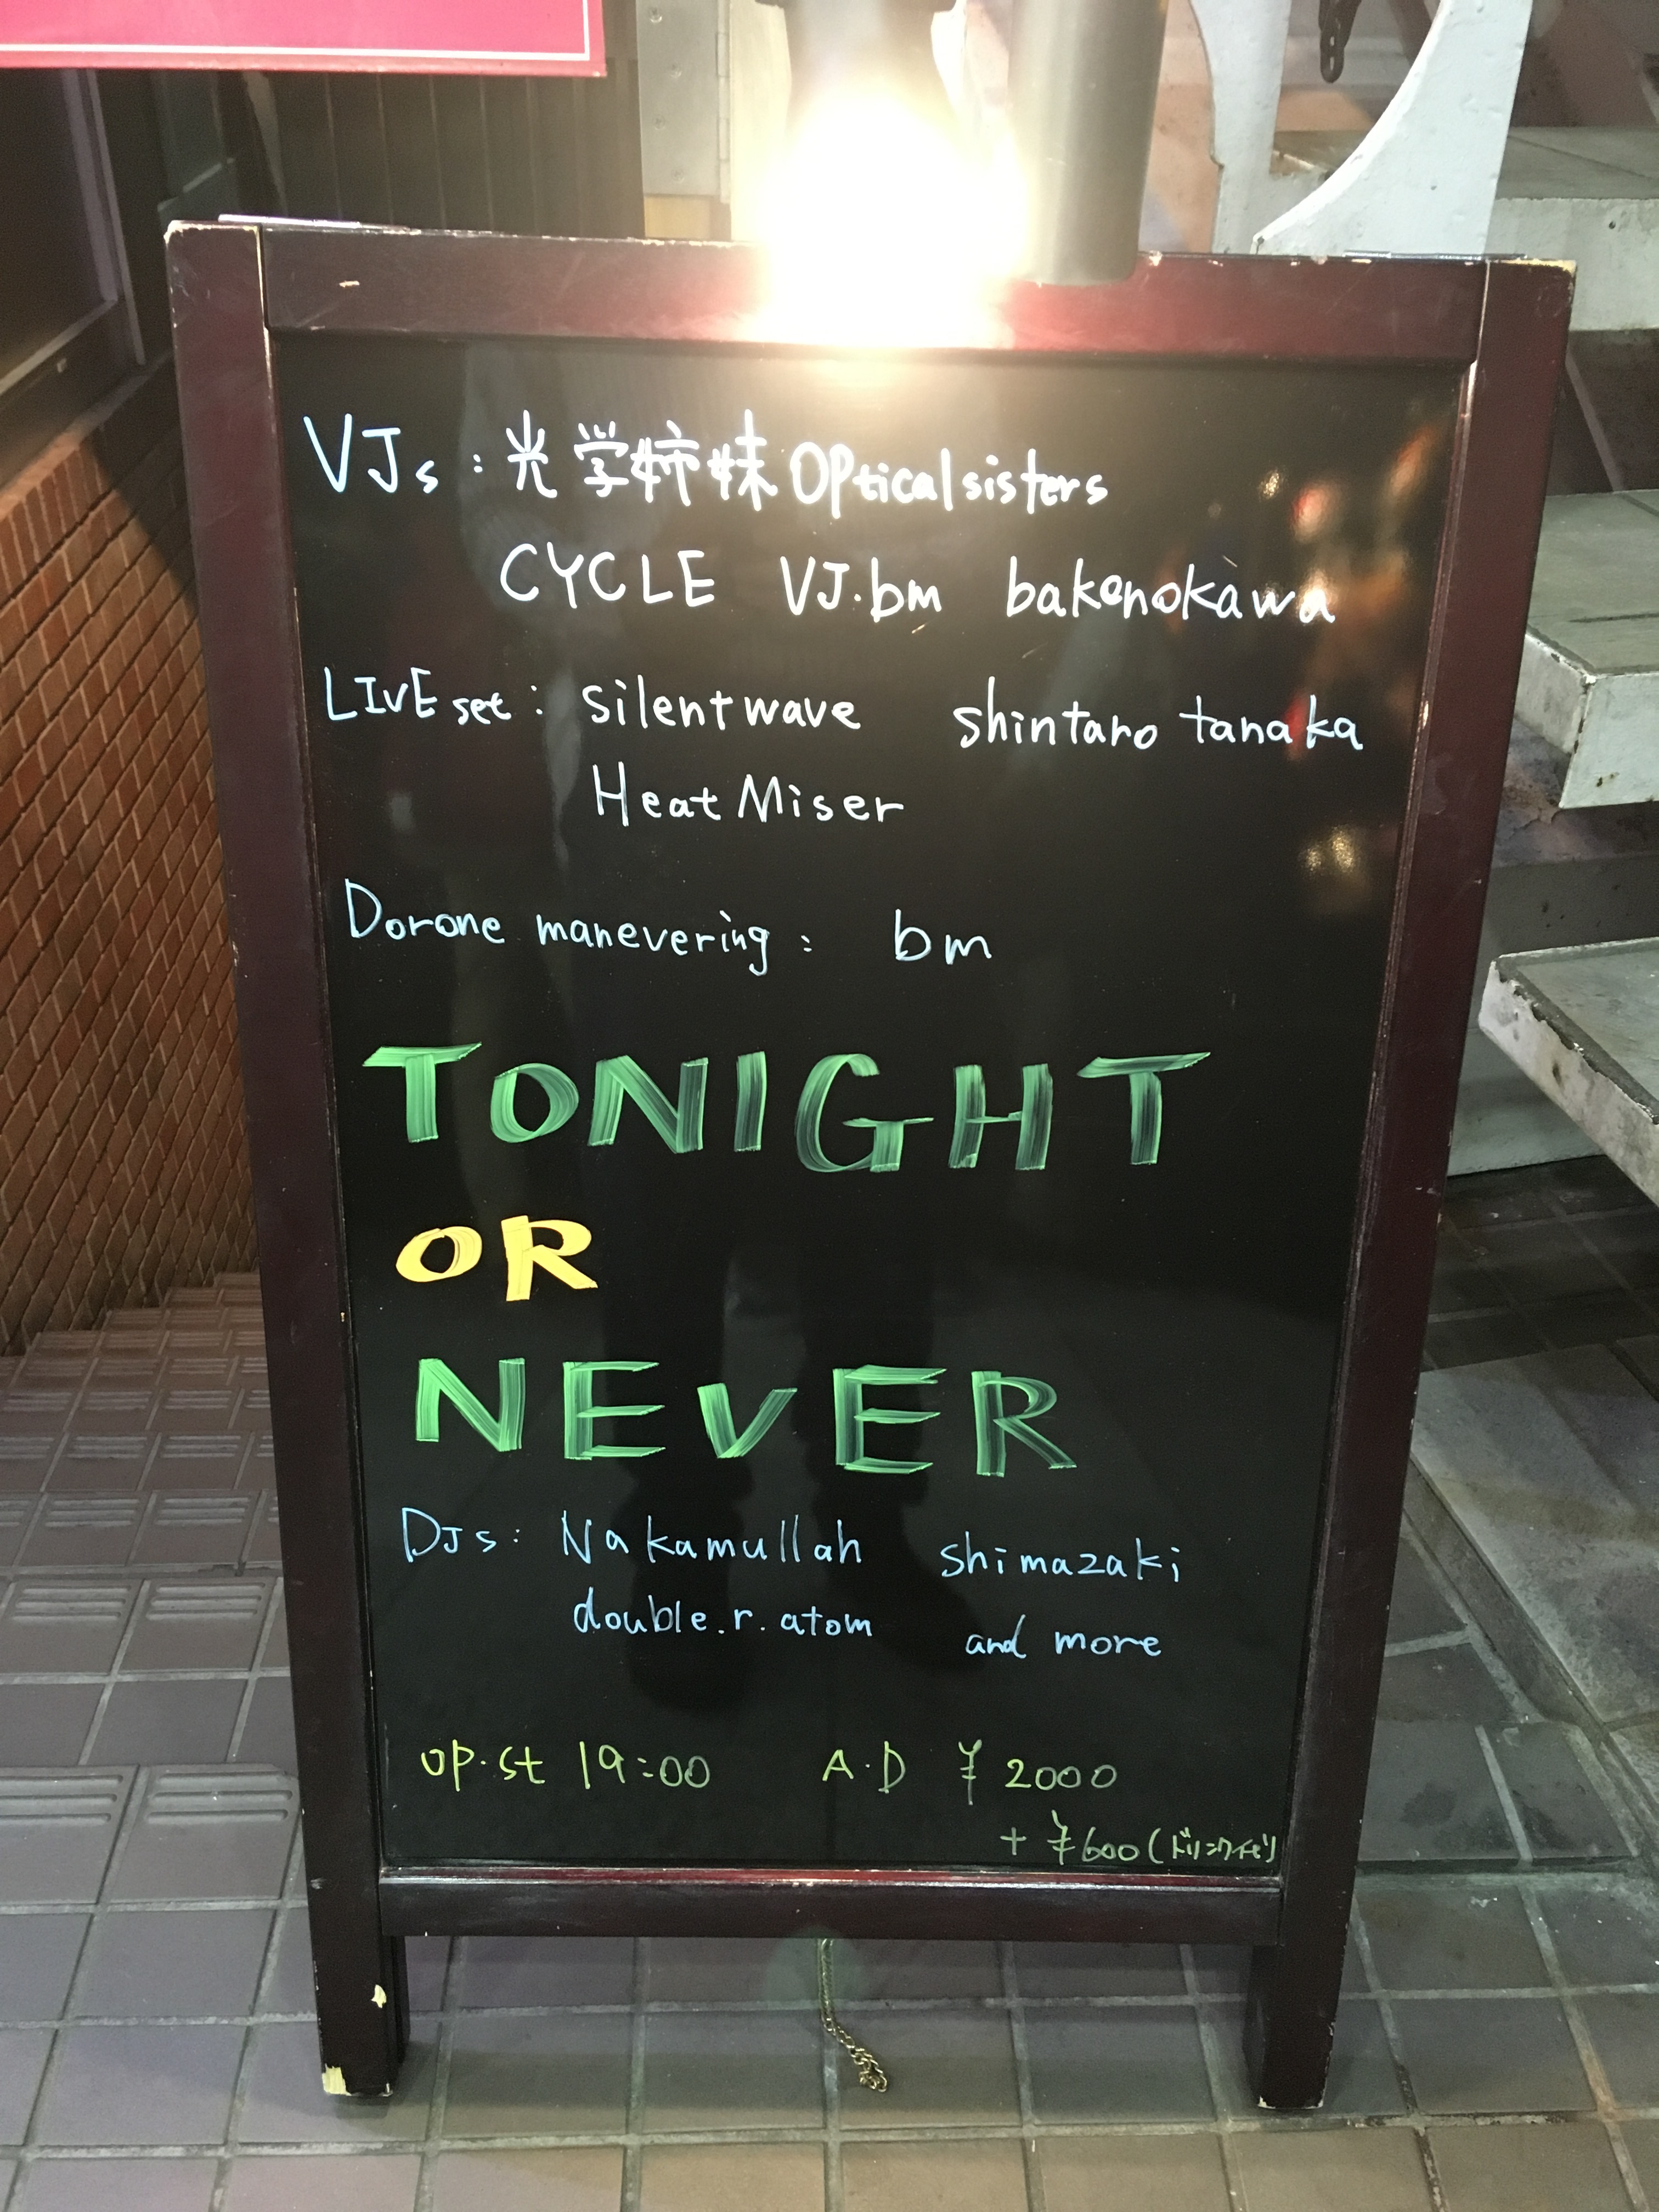 VJs : 光学姉妹 OPticalsisters
CYCLE VJ.bm bakenokawa
LIVE set : silentwave shintaro tanaka
Heat Miser
Dorone manevering : bm
TONIGHT
OR
NEVER
DJs : Nakamullah shimazaki
double.r.atom and more
OP.St 19:00 A.D ¥2000
+ ¥600 (ドリンク代)